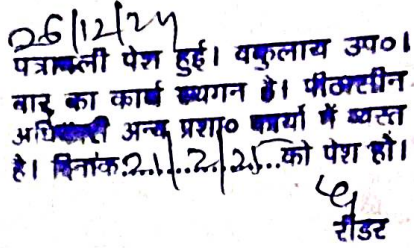 26/12/24
पत्रावली पेश हुई। वकुलाय उप०।
बार का कार्य स्थगन है। पीठासीन
अधिकारी अन्य प्रशा० कार्यो में व्यस्त
है। दिनांक..21/2/25...को पेश हो।
रीडर